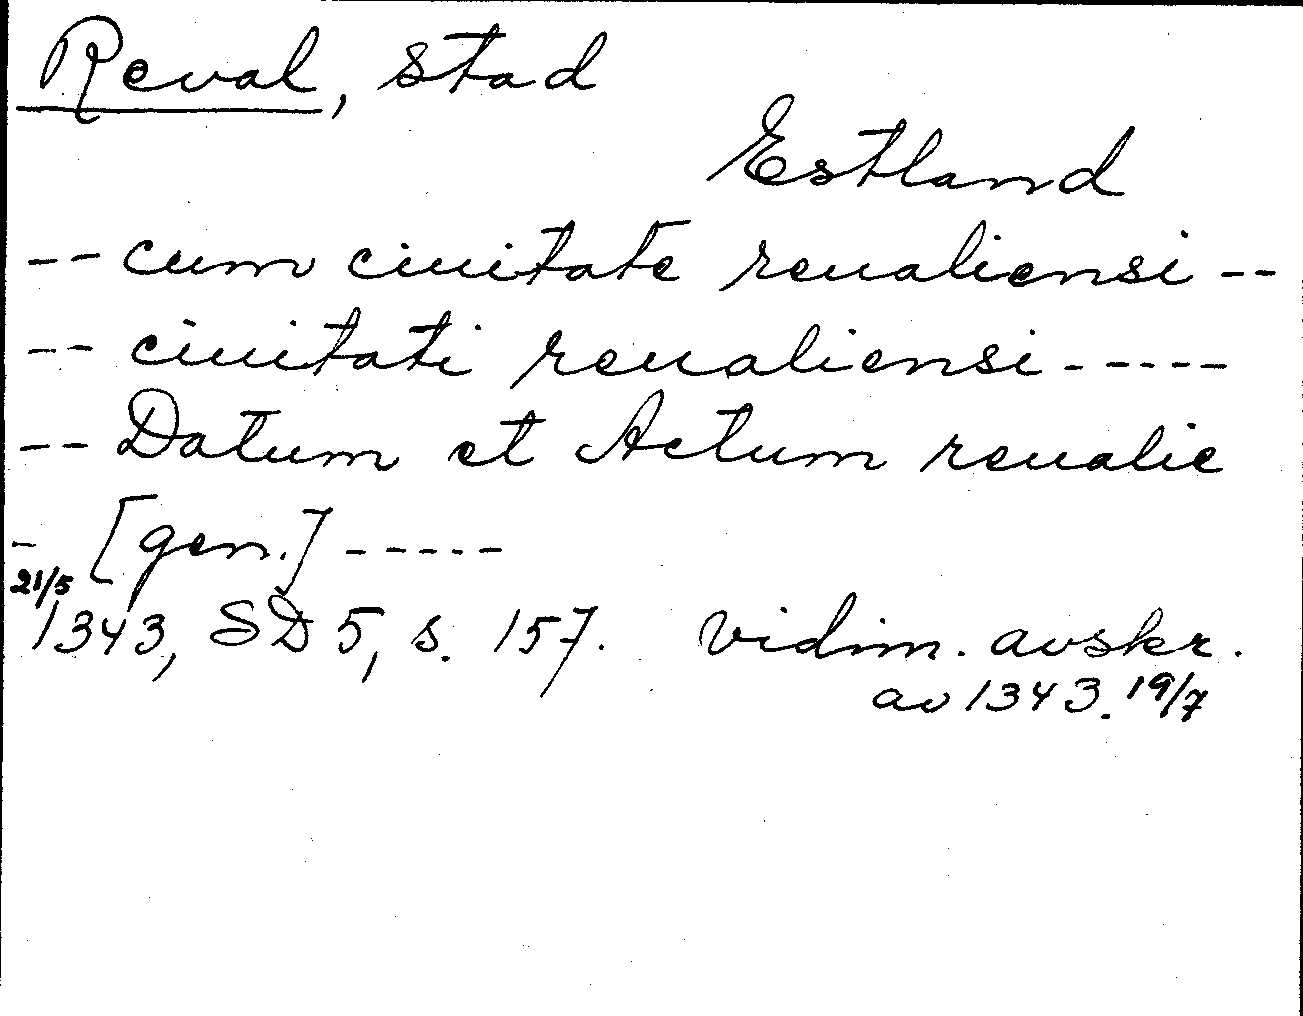 Reval, stad
Estland
-- cum ciuitate reualiensi --
-- ciuitati reualiensi -----
-- Datum et Actum reualie
- [gen.] -----
21/5
1343, SD 5, s. 157. vidim. avskr.
av 1343. 19/7